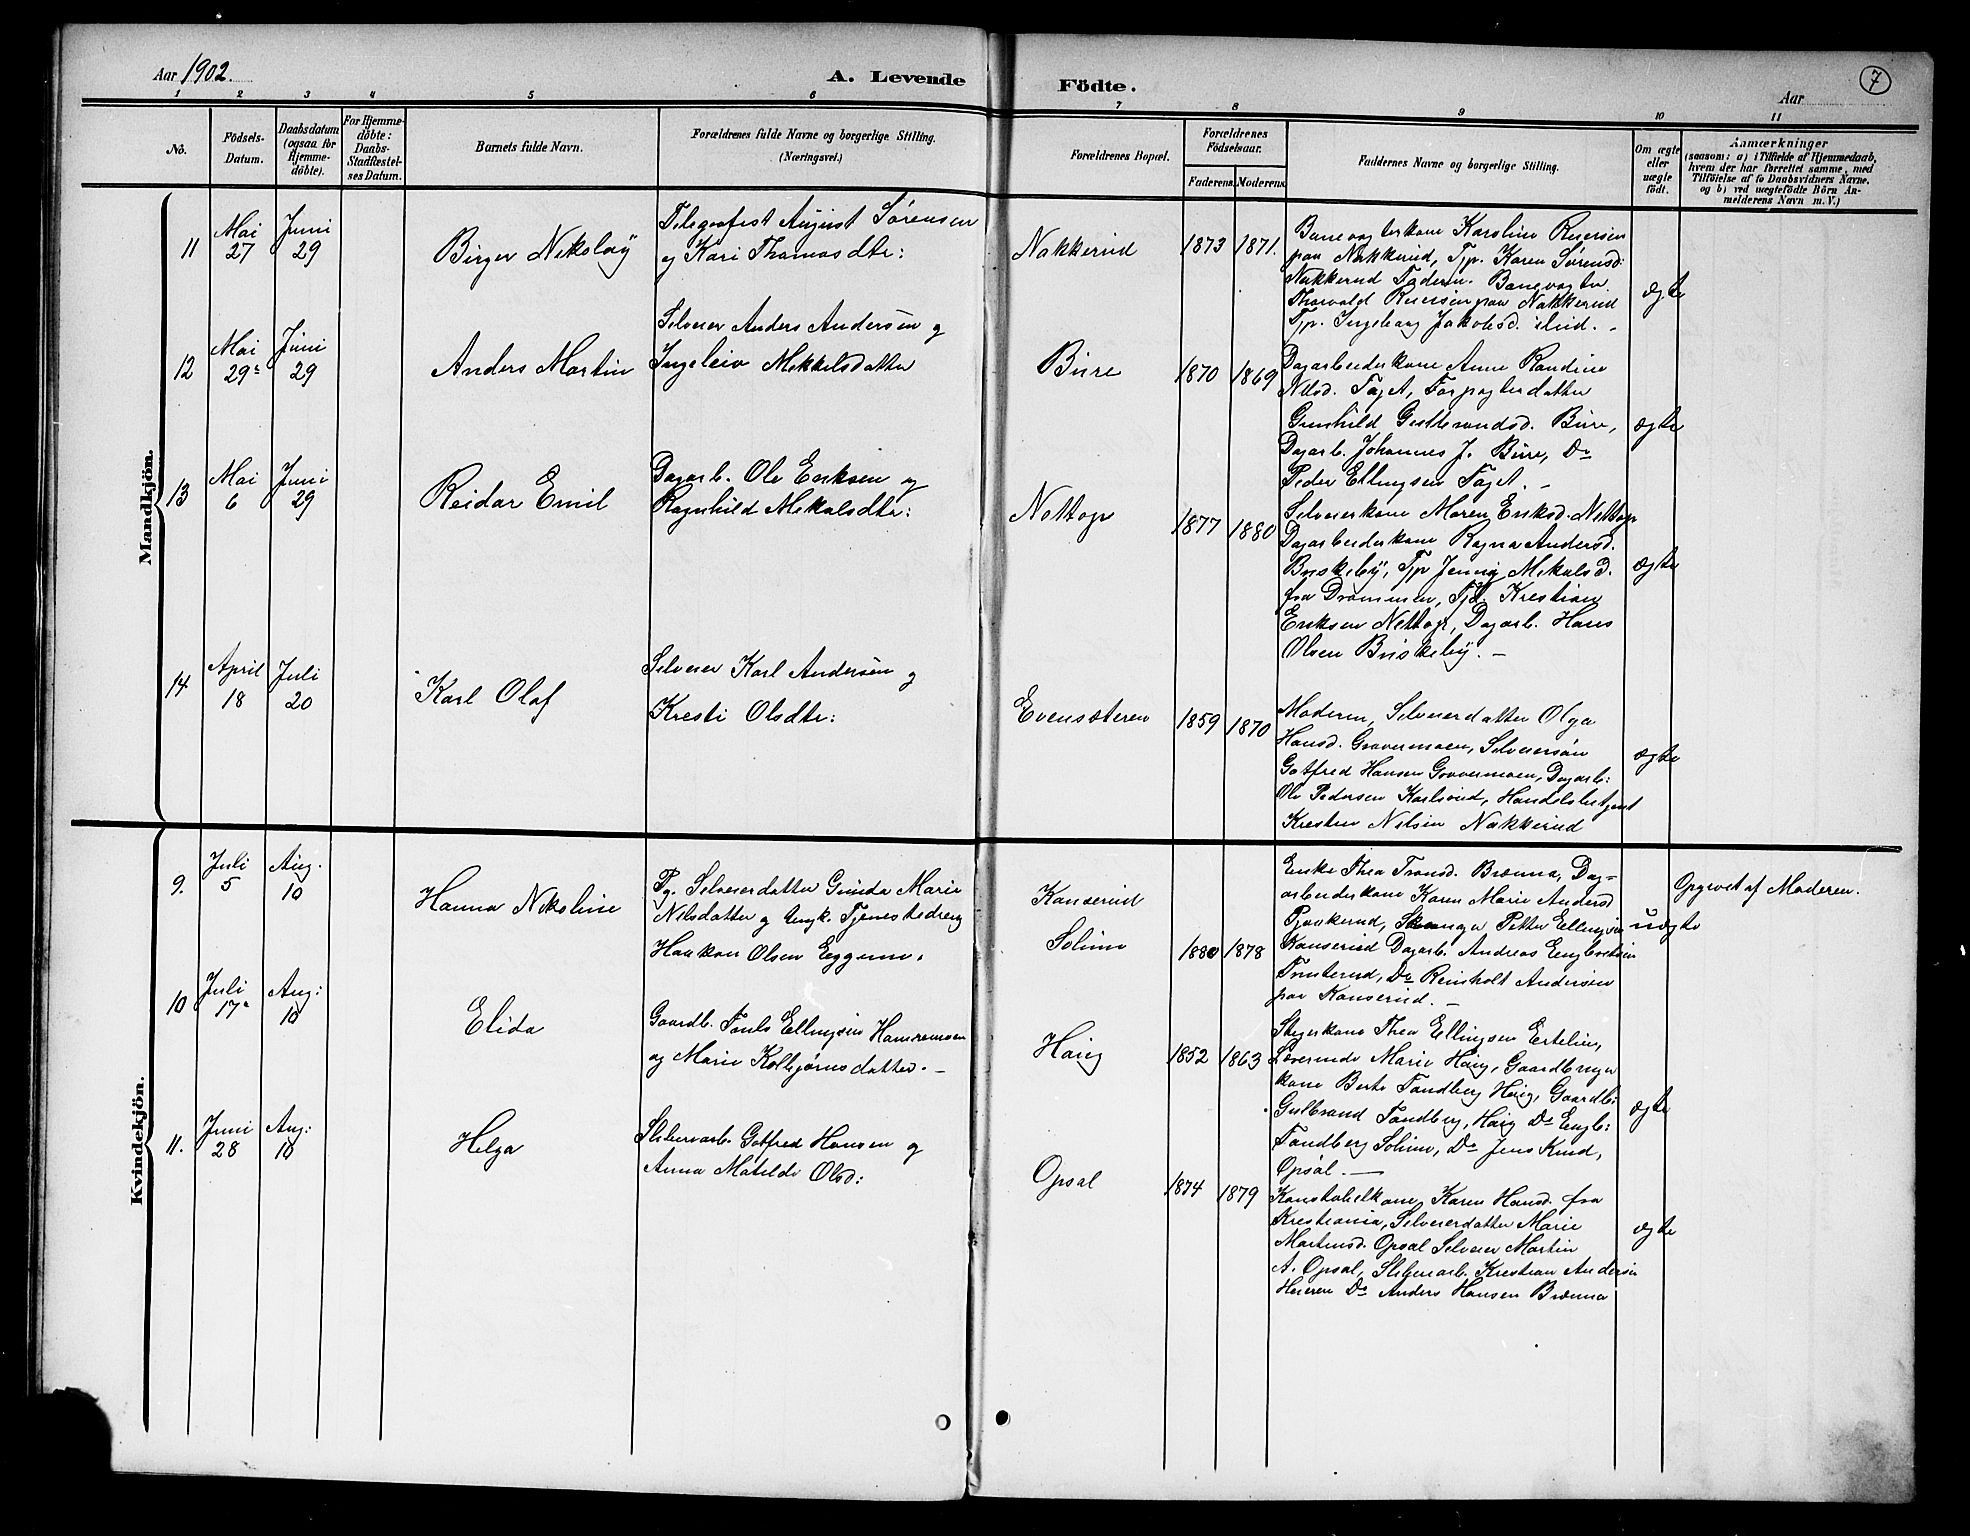 Aar 1902.
A. Levende Födte.
Aar
7
1 2 3 4 5 6 7 8 9 10 11
No.
Födsels-
Datum.
Daabsdatum
(ogsaa for
Hjemme-
døbte).
For Hjemme-
døbte:
Daabs-
Stadfæstel-
ses Datum.
Barnets fulde Navn.
Forældrenes fulde Navne og borgerlige Stilling.
(Næringsvei.)
Forældrenes Bopæl.
Forældrenes
Födselsaar.
Faderens. Moderens.
Faddernes Navne og borgerlige Stilling.
Om ægte
eller
uægte
født.
Anmærkninger
(saasom: a) i Tilfælde af Hjemmedaab,
hvem der har forrettet samme, med
Tilføielse af to Daabsvidners Navne,
og b) ved uægtefödte Börn An-
melderens Navn m. V.)
Mandkjön.
11
Mai
27
Juni
29
Birger Nikolay
Telegrafist August Sørensen
og Kari Thomasdtr:
Nakkerud
1873 1871.
Banevogterkone Karoline Reiersen
paa Nakkerud, Tjp. Karen Sørensd:
Nakkerud Faderen. Banevogter
Thorvald Reiersen paa Nakkerud
Tjp. Ingeborg Jakobsd. ilind. -
ægte
12
Mai
29
Juni
29
Anders Martin
Selveier Anders Andersen og
Ingeleiv Mekkelsdatter
Bure
1870 1869
Dagarbeiderkone Anne Randine
Nilsd. Faget, Forpagterdatter
Gunhild Gulbrandsd. Bure,
Dagarb. Johannes J. Bure, Do
Peder Ellingsen Faget. -
ægte
13
Mai
6
Juni
29
Reidar Emil
Dagarb. Ole Eriksen og
Ragnhild Mekalsdtr:
Nettop
1877 1880
Selveierkone Maren Eriksd. Nettop
Dagarbeiderkone Ragna Andersd.
Briskeby, Tjp Jenny Mekalsd.
fra Drammen, Tjd. Krestian
Eriksen Nettop, Dagarb. Hans
Olsen Briskeby. -
ægte
14
April
18
Juli
20
Karl Olaf
Selveier Karl Andersen og
Kresti Olsdtr:
Evensæteren
1859 1870
Moderen, Selveierdatter Olga
Hansd. Gravermoen, Selveiersøn
Gotfred Hansen Gravermoen, Dagarb:
Ole Pedersen Karlsrud, Handelsbetjent
Kresten Nilsen Nakkerud
ægte
Kvindekjön.
9.
Juli
5
Aug.
10
Hanna Nikoline
Pg. Selveierdatter Gunda Marie
Nilsdatter og Ungk. Tjenestedreng
Haakon Olsen Eggum.
Kanserud
Solum
1880 1878
Enke Thea Tronsd. Brænna, Dag-
arbeiderkone Karen Marie Andersd
Pjaakerud, Skomager Petter Ellingsen
Kanserud Dagarb. Andreas Englbretsen
Do Reinholt Andersen
paa Kanserud. -
uægte
Opgivet af Moderen.
10
Juli
17
Aug:
10
Elida
Gaardb. Pauls Ellingsen Hamremoen
og Marie Kolbjørnsdatter. -
Haug
1852 1863
Stigerkone Thea Ellingsen Ertelien,
Lærerinde Marie Haug, Gaardbruger
kone Berte Tandberg Haug, Gaardb:
Gulbrand Tandberg, Haug Do Englb:
Tandberg Solum, Do Jens Knud,
Opsal. -
ægte
11.
Juni
28
Aug:
10
Helga
Sliberiarb. Gotfred Hansen og
Anna Matilde Olsd:
Opsal
1874 1879
Konstabelkone, Karen Hansd. fra
Krestiania, Selveierdatter Marie
Martinsd. Opsal Selveier Martin
A. Opsal, Sliberiarb. Krestian Andersen
Heieren Do Anders Hansen Brænna
ægte